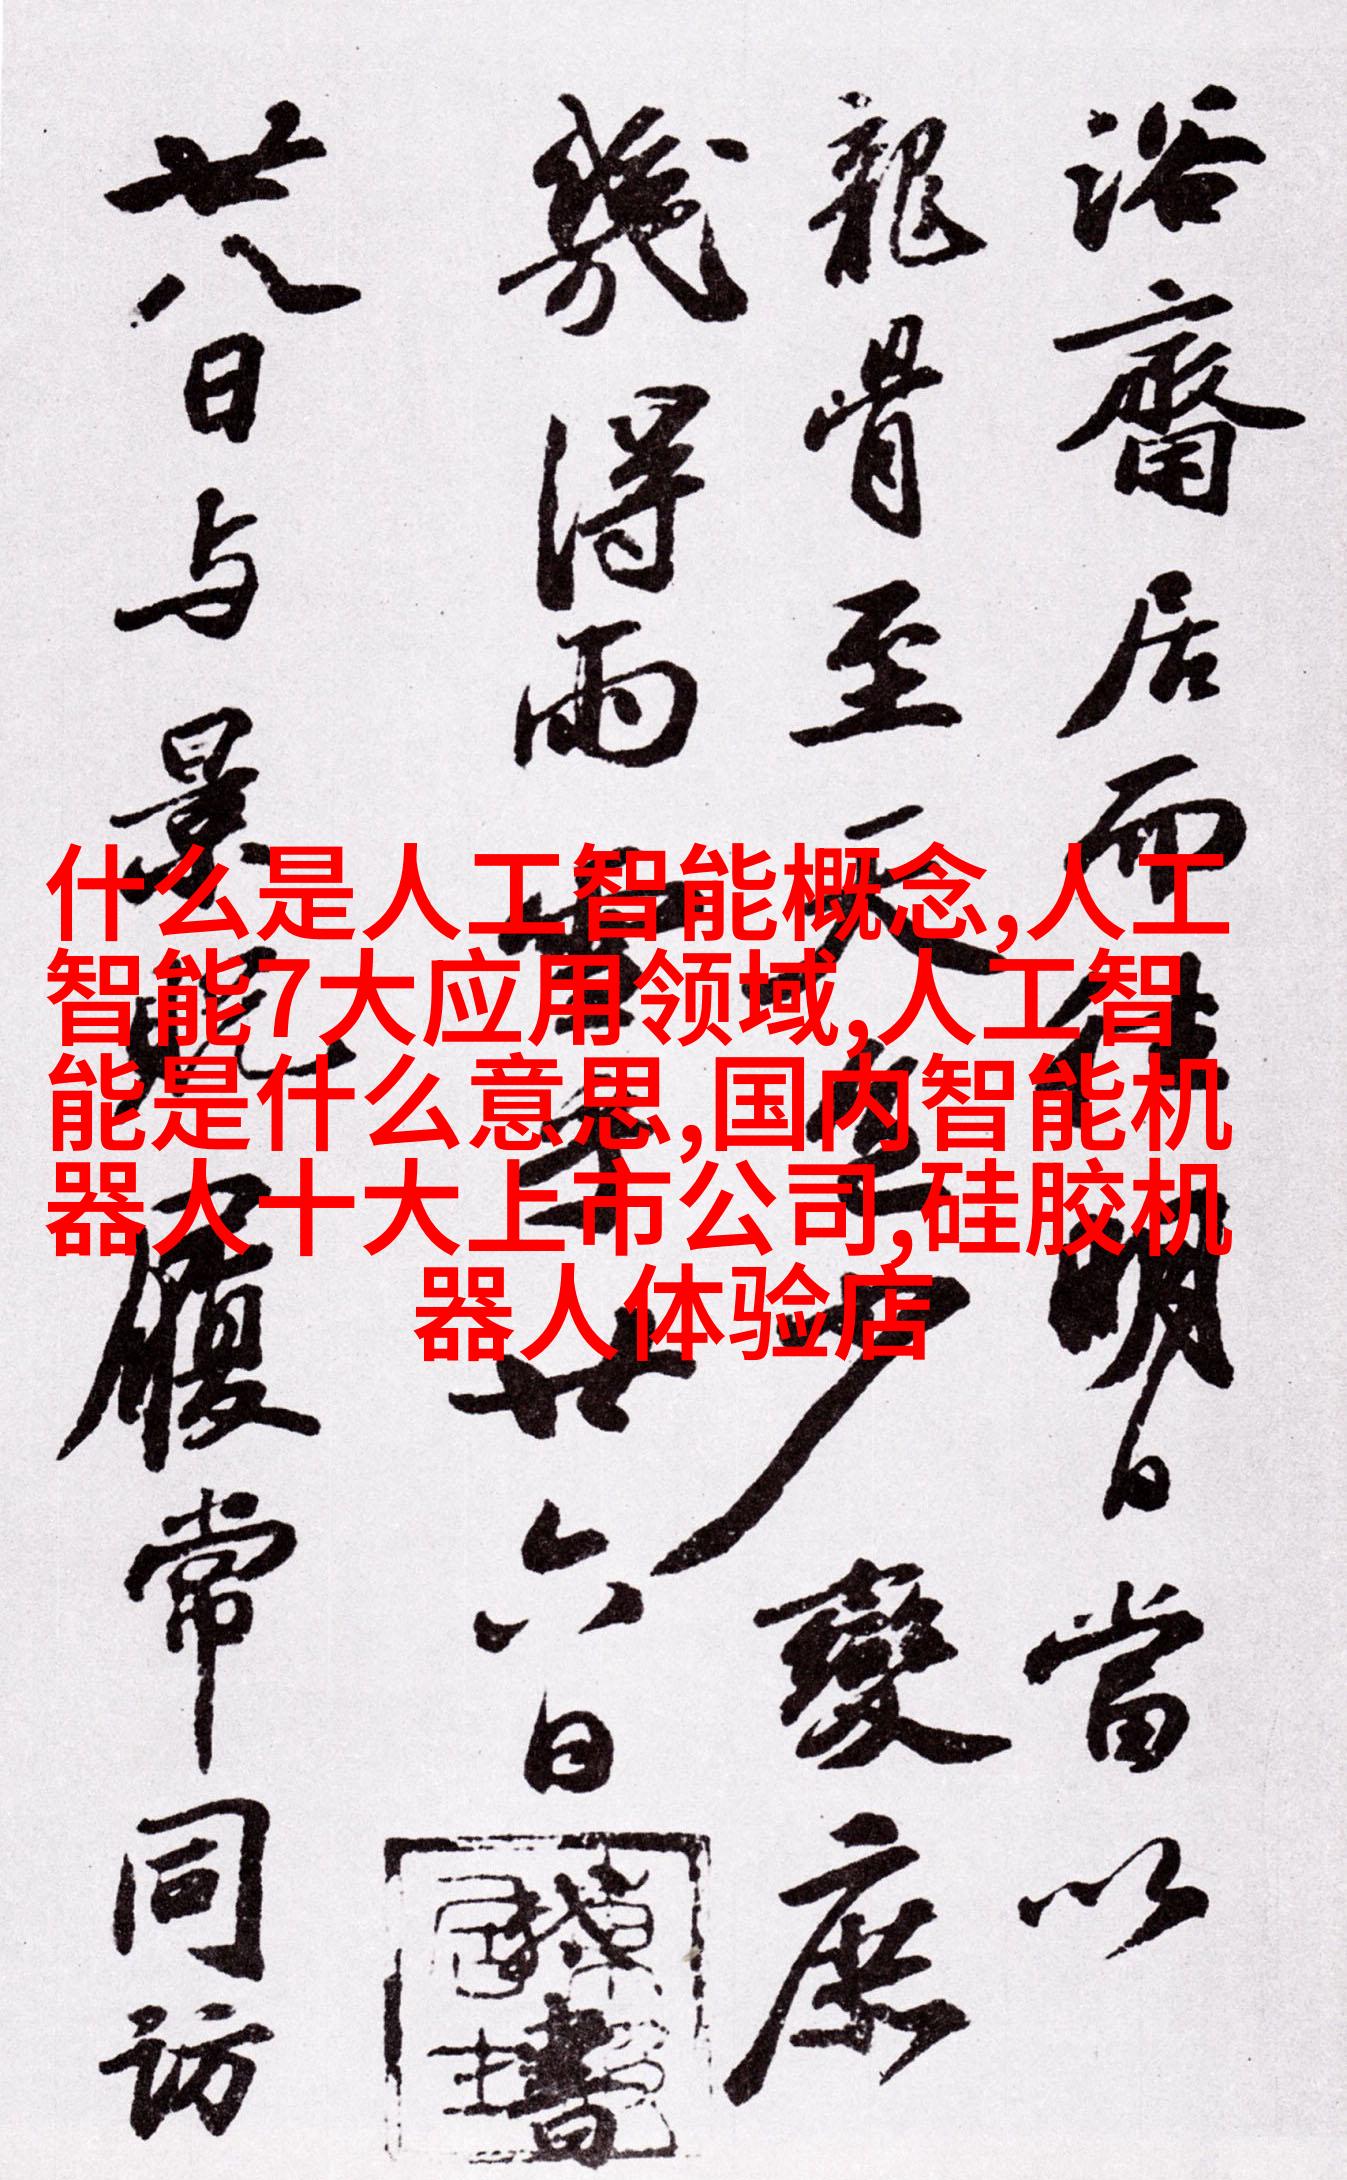 浴齋居而往明日當以
龍骨至天色少變庶
幾得雨雪乎廿六日書
廿八日与景貺履常同訪
什么是人工智能概念,人工
智能7大应用领域,人工智
能是什么意思,国内智能机
器人十大上市公司,硅胶机
器人体验店